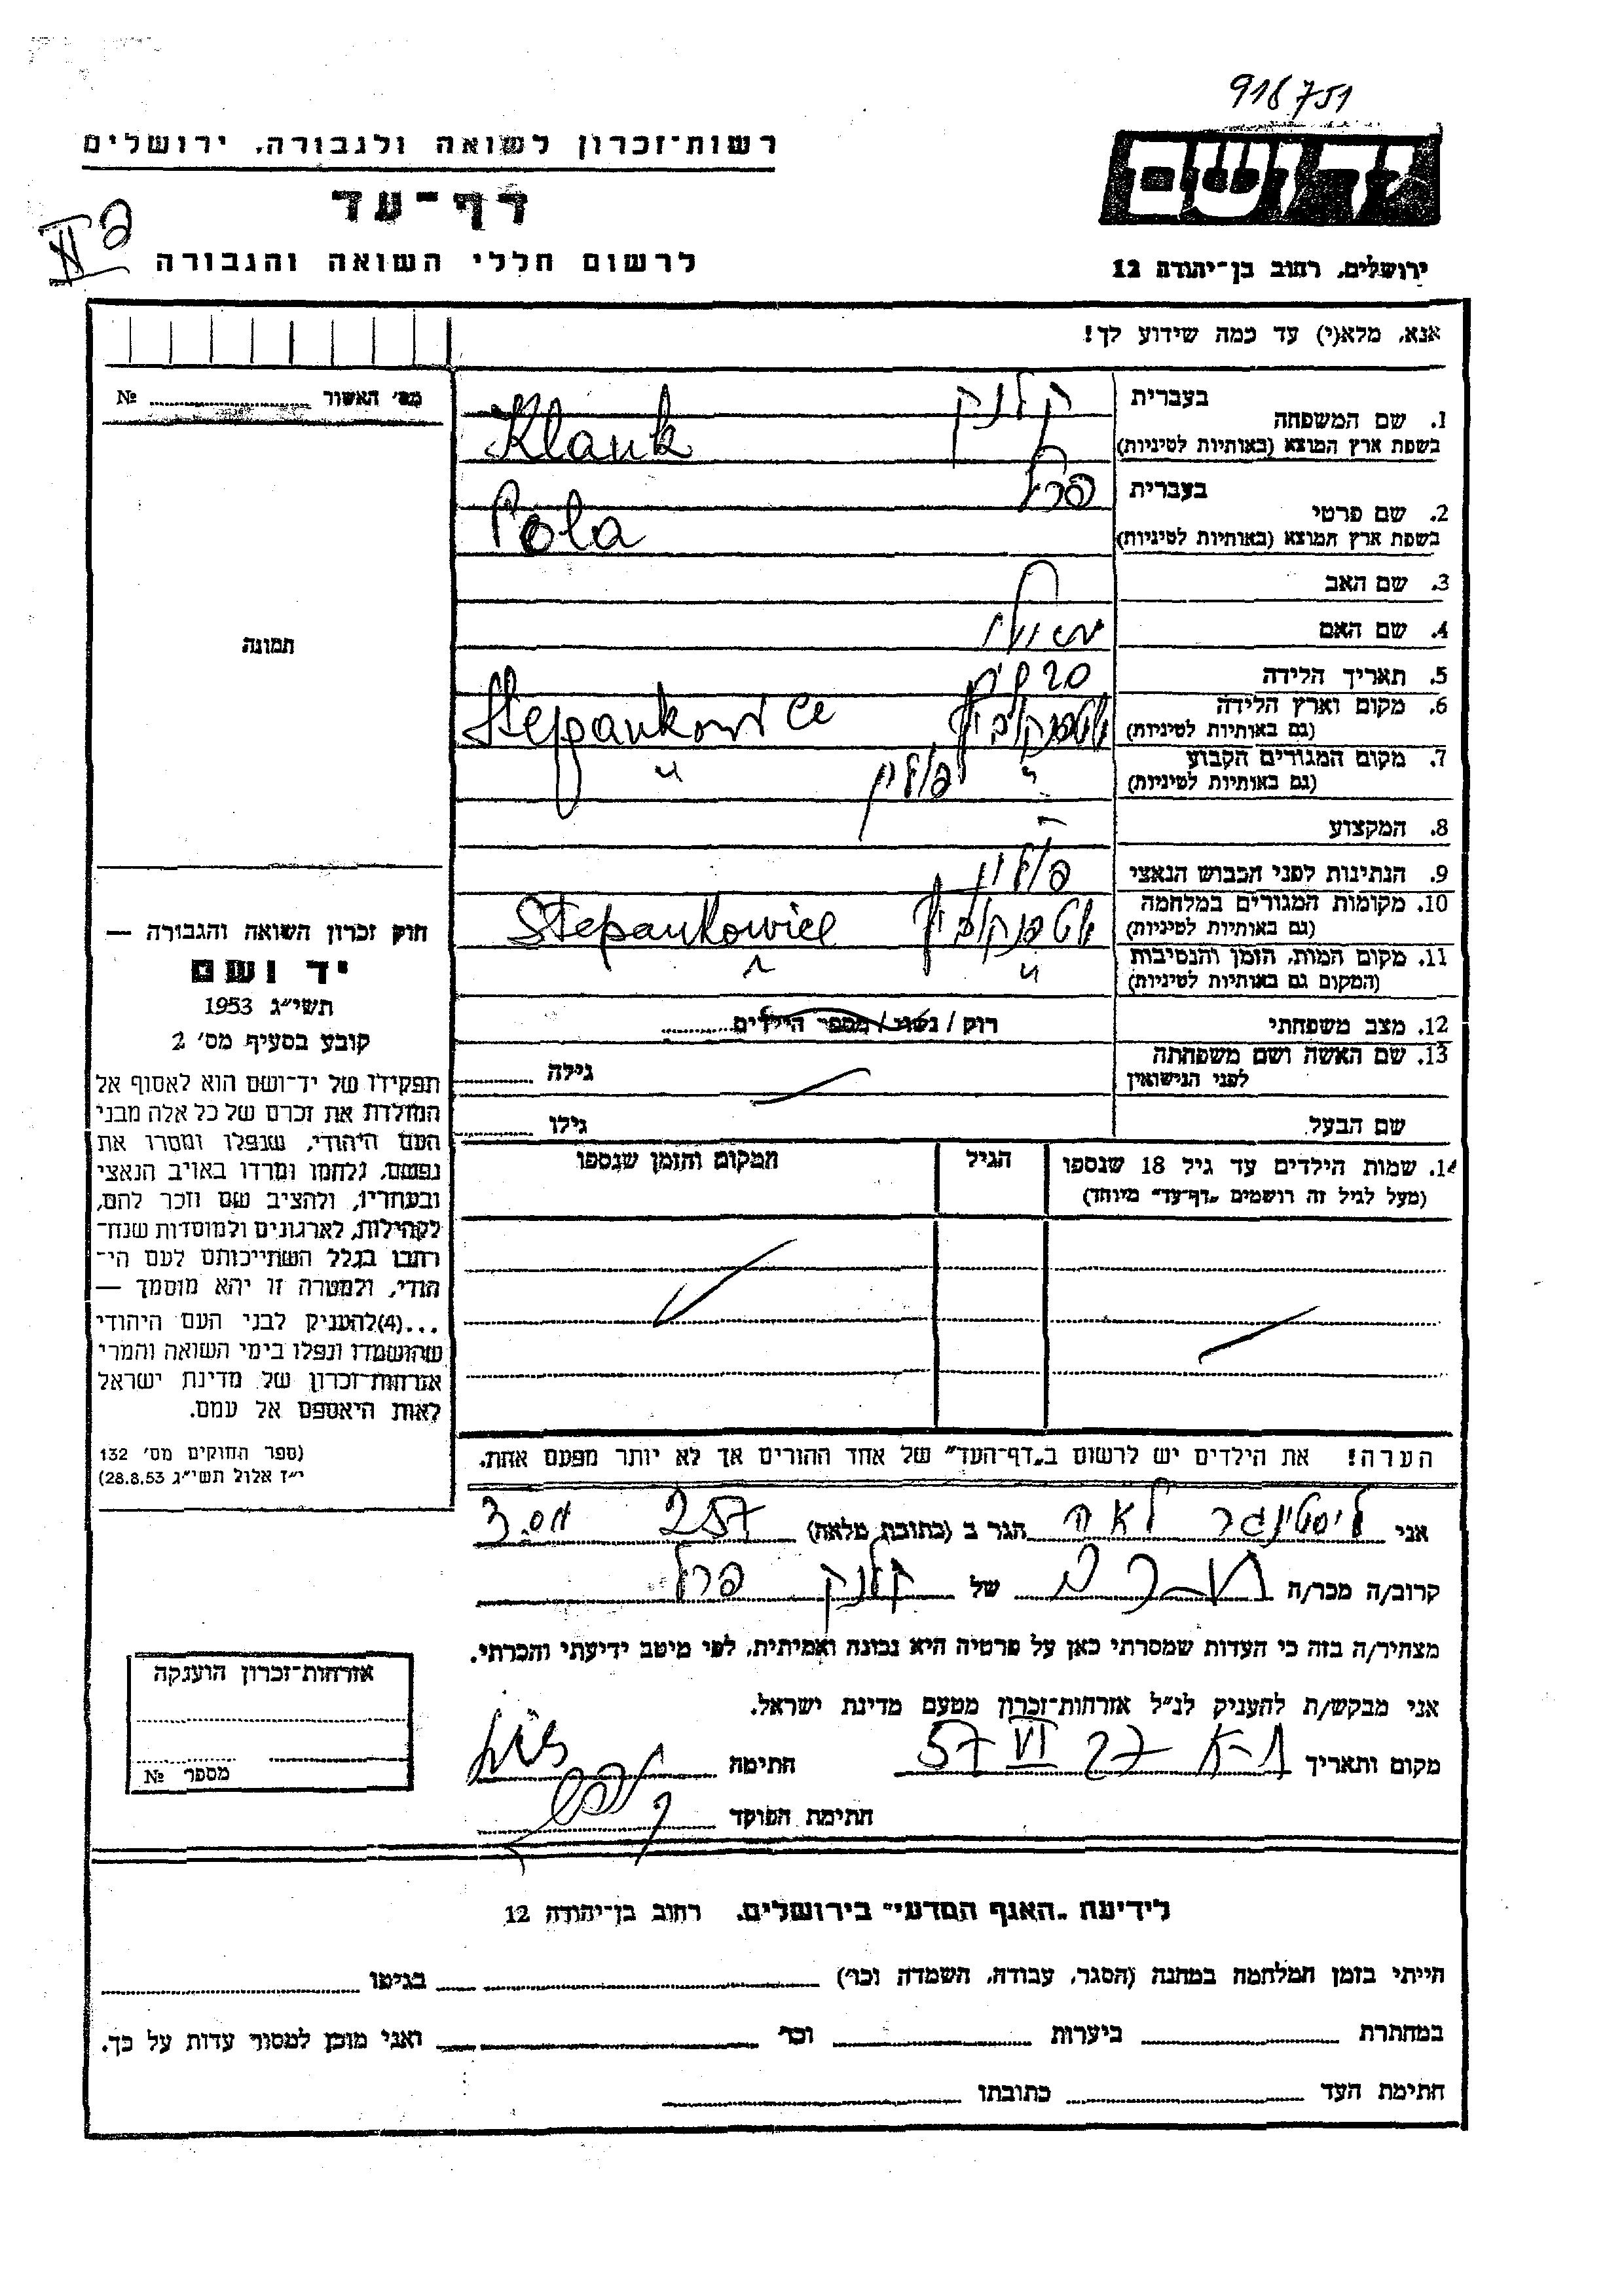 916751
רשות־זכרון לשואה ולגבורה, ירושלים
דף־עד
לרשום חללי השואה והגבורה
יד ושם
ירושלים, רחוב בן־יהודה 12
אנא, מלא(י) עד כמה שידוע לך!
מס׳ האשור № 
תמונה
1. שם המשפחה
בעברית קלנק
בשפת ארץ המוצא (באותיות לטיניות) Klank
2. שם פרטי
בעברית פרל
בשפת ארץ המוצא (באותיות לטיניות) Pola
3. שם האב
4. שם האם
5. תאריך הלידה 20
6. מקום וארץ הלידה
(גם באותיות לטיניות) Stepankowice
7. מקום המגורים הקבוע
(גם באותיות לטיניות) " פולין "
8. המקצוע
9. הנתינות לפני הכבוש הנאצי פולין
10. מקומות המגורים במלחמה
(גם באותיות לטיניות) Stepankowice
11. מקום המות, הזמן והנסיבות
(המקום גם באותיות לטיניות) "
12. מצב משפחתי רוק / נשוי / מספר הילדים
13. שם האשה ושם משפחתה גילה
לפני הנישואין
שם הבעל גילו
14. שמות הילדים עד גיל 18 שנספו הגיל המקום והזמן שנספו
(מעל לגיל זה רושמים „דף־עד״ מיוחד)
חוק זכרון השואה והגבורה —
יד ושם
תשי״ג 1953
קובע בסעיף מס׳ 2
תפקידו של יד־ושם הוא לאסוף אל
המולדת את זכרם של כל אלה מבני
העם היהודי, שנפלו ומסרו את
נפשם, נלחמו ומרדו באויב הנאצי
ובעוזריו, ולהציב שם וזכר להם,
לקהילות, לארגונים ולמוסדות שנח־
רבו בגלל השתייכותם לעם הי־
הודי, ולמטרה זו יהא מוסמך —
...(4)להעניק לבני העם היהודי
שהושמדו ונפלו בימי השואה והמרי
אזרחות־זכרון של מדינת ישראל
לאות היאספם אל עמם.
(ספר החוקים מס׳ 132
י״ז אלול תשי״ג 28.8.53)
הערה! את הילדים יש לרשום ב„דף־העד״ של אחד ההורים אך לא יותר מפעם אחת.
אני ליסטינגר לאה הגר ב (כתובת מלאה) 257
קרוב/ה מכר/ה של קלנק פרל
מצהיר/ה בזה כי העדות שמסרתי כאן על פרטיה היא נכונה ואמיתית, לפי מיטב ידיעתי והכרתי.
אני מבקש/ת להעניק לנ״ל אזרחות־זכרון מטעם מדינת ישראל.
מקום ותאריך 27 VI 57 חתימה
חתימת הפוקד
אזרחות־זכרון הוענקה
מספר №
לידיעת „האגף המדעי״ בירושלים, רחוב בן־יהודה 12
הייתי בזמן המלחמה במחנה (הסגר, עבודה, השמדה וכו׳) בגיטו
במחתרת ביערות וכו׳ ואני מוכן למסור עדות על כך.
חתימת העד כתובתו